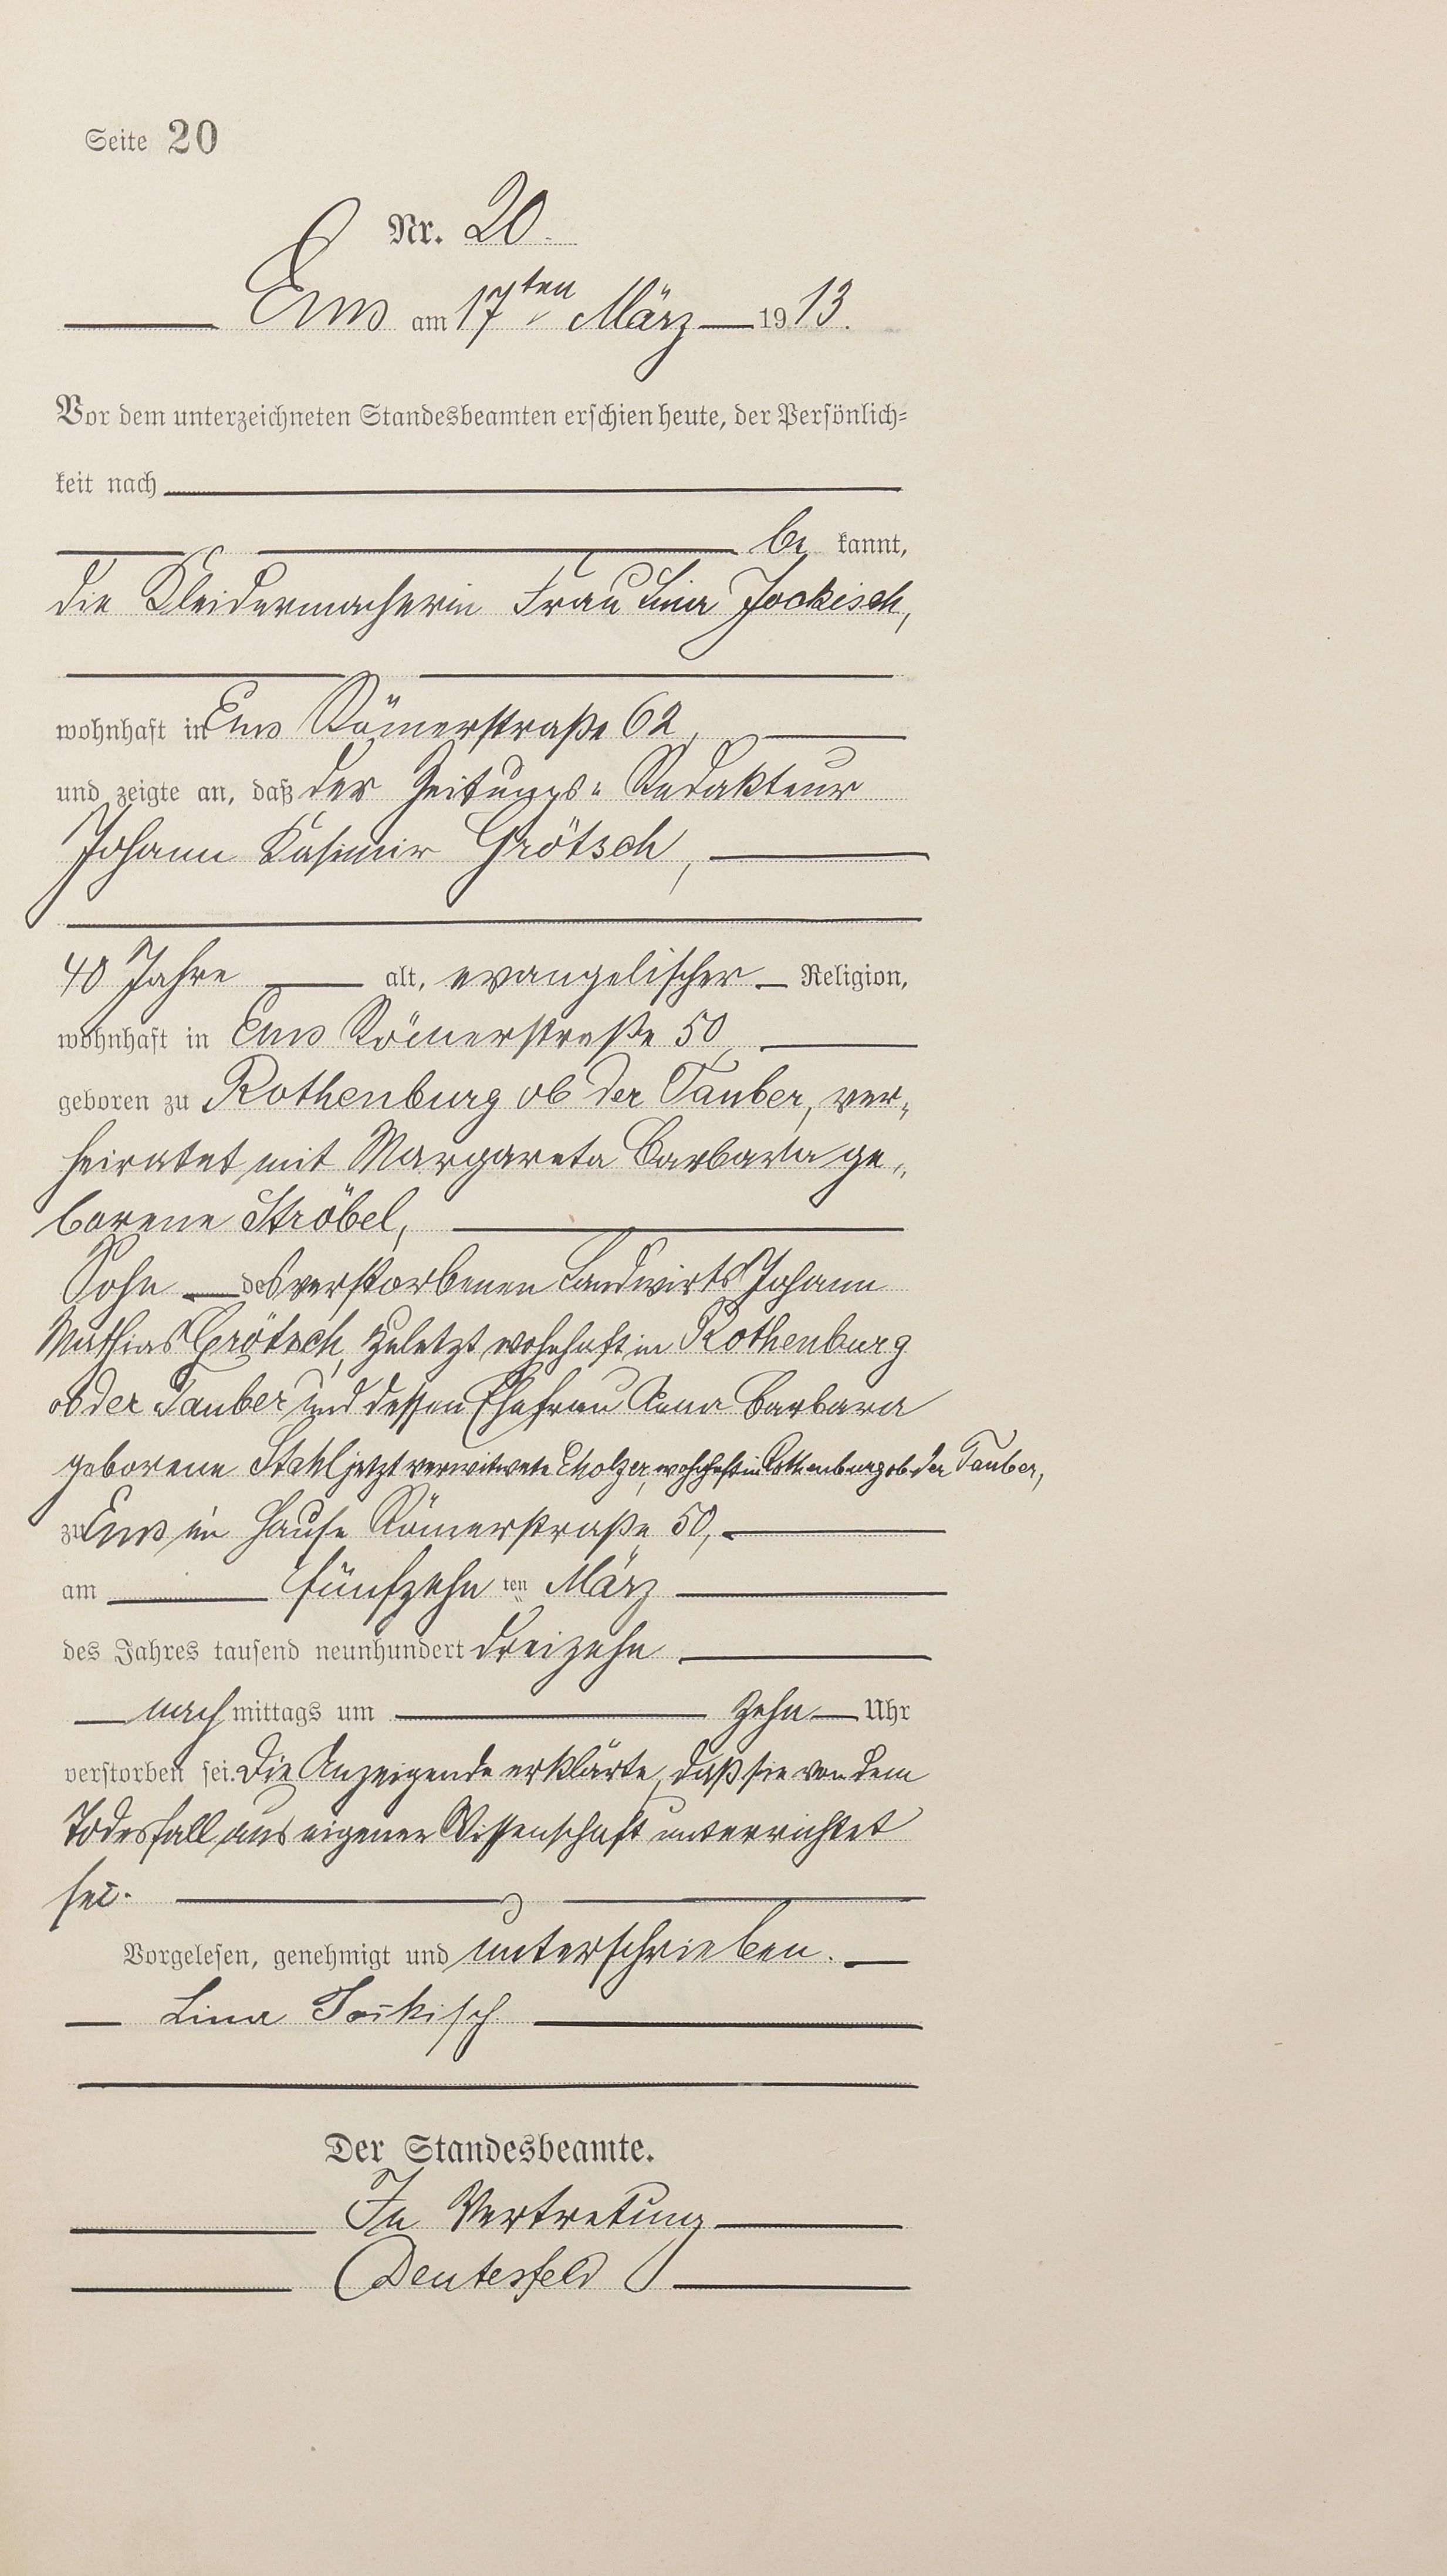 Seite 20
Nr. 20.
Ems am 17ten März 1913.
Vor dem unterzeichneten Standesbeamten erschien heute, der Persönlich=
keit nach
bekannt,
die Kleidermacherin Frau Lina Jockisch,
wohnhaft in Ems Römerstraße 62,
und zeigte an, daß der Zeitungs= Redakteur
Johann Kasimir Grötsch,
40 Jahre alt, evangelischer Religion,
wohnhaft in Ems Römerstraße 50,
geboren zu Rothenburg ob der Tauber, ver=
heiratet mit Margareta Barbara ge=
borene Ströbel,
Sohn des verstorbenen Landwirts Johann
Mathias Grötsch, zuletzt wohnhaft in Rothenburg
ob der Tauber und dessen Ehefrau Anna Barbara
geborene Stahl jetzt verwitwete, wohnhaft in Rothenburg ob der Tauber,
zu Ems im Hause Römerstraße 50,
am fünfzehnten März
des Jahres tausend neunhundert dreizehn
nachmittags um zehn Uhr
verstorben sei. Die Anzeigende erklärte, daß sie von dem
Todesfall aus eigener Wissenschaft unterrichtet
sei.
Vorgelesen, genehmigt und unterschrieben.
Lina Jockisch
Der Standesbeamte.
In Vertretung
Deutesfeld